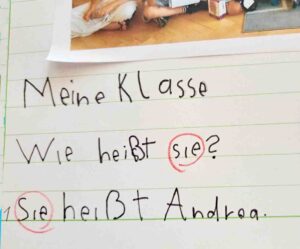 Meine Klasse
Wie heißt sie?
Sie heißt Andrea.